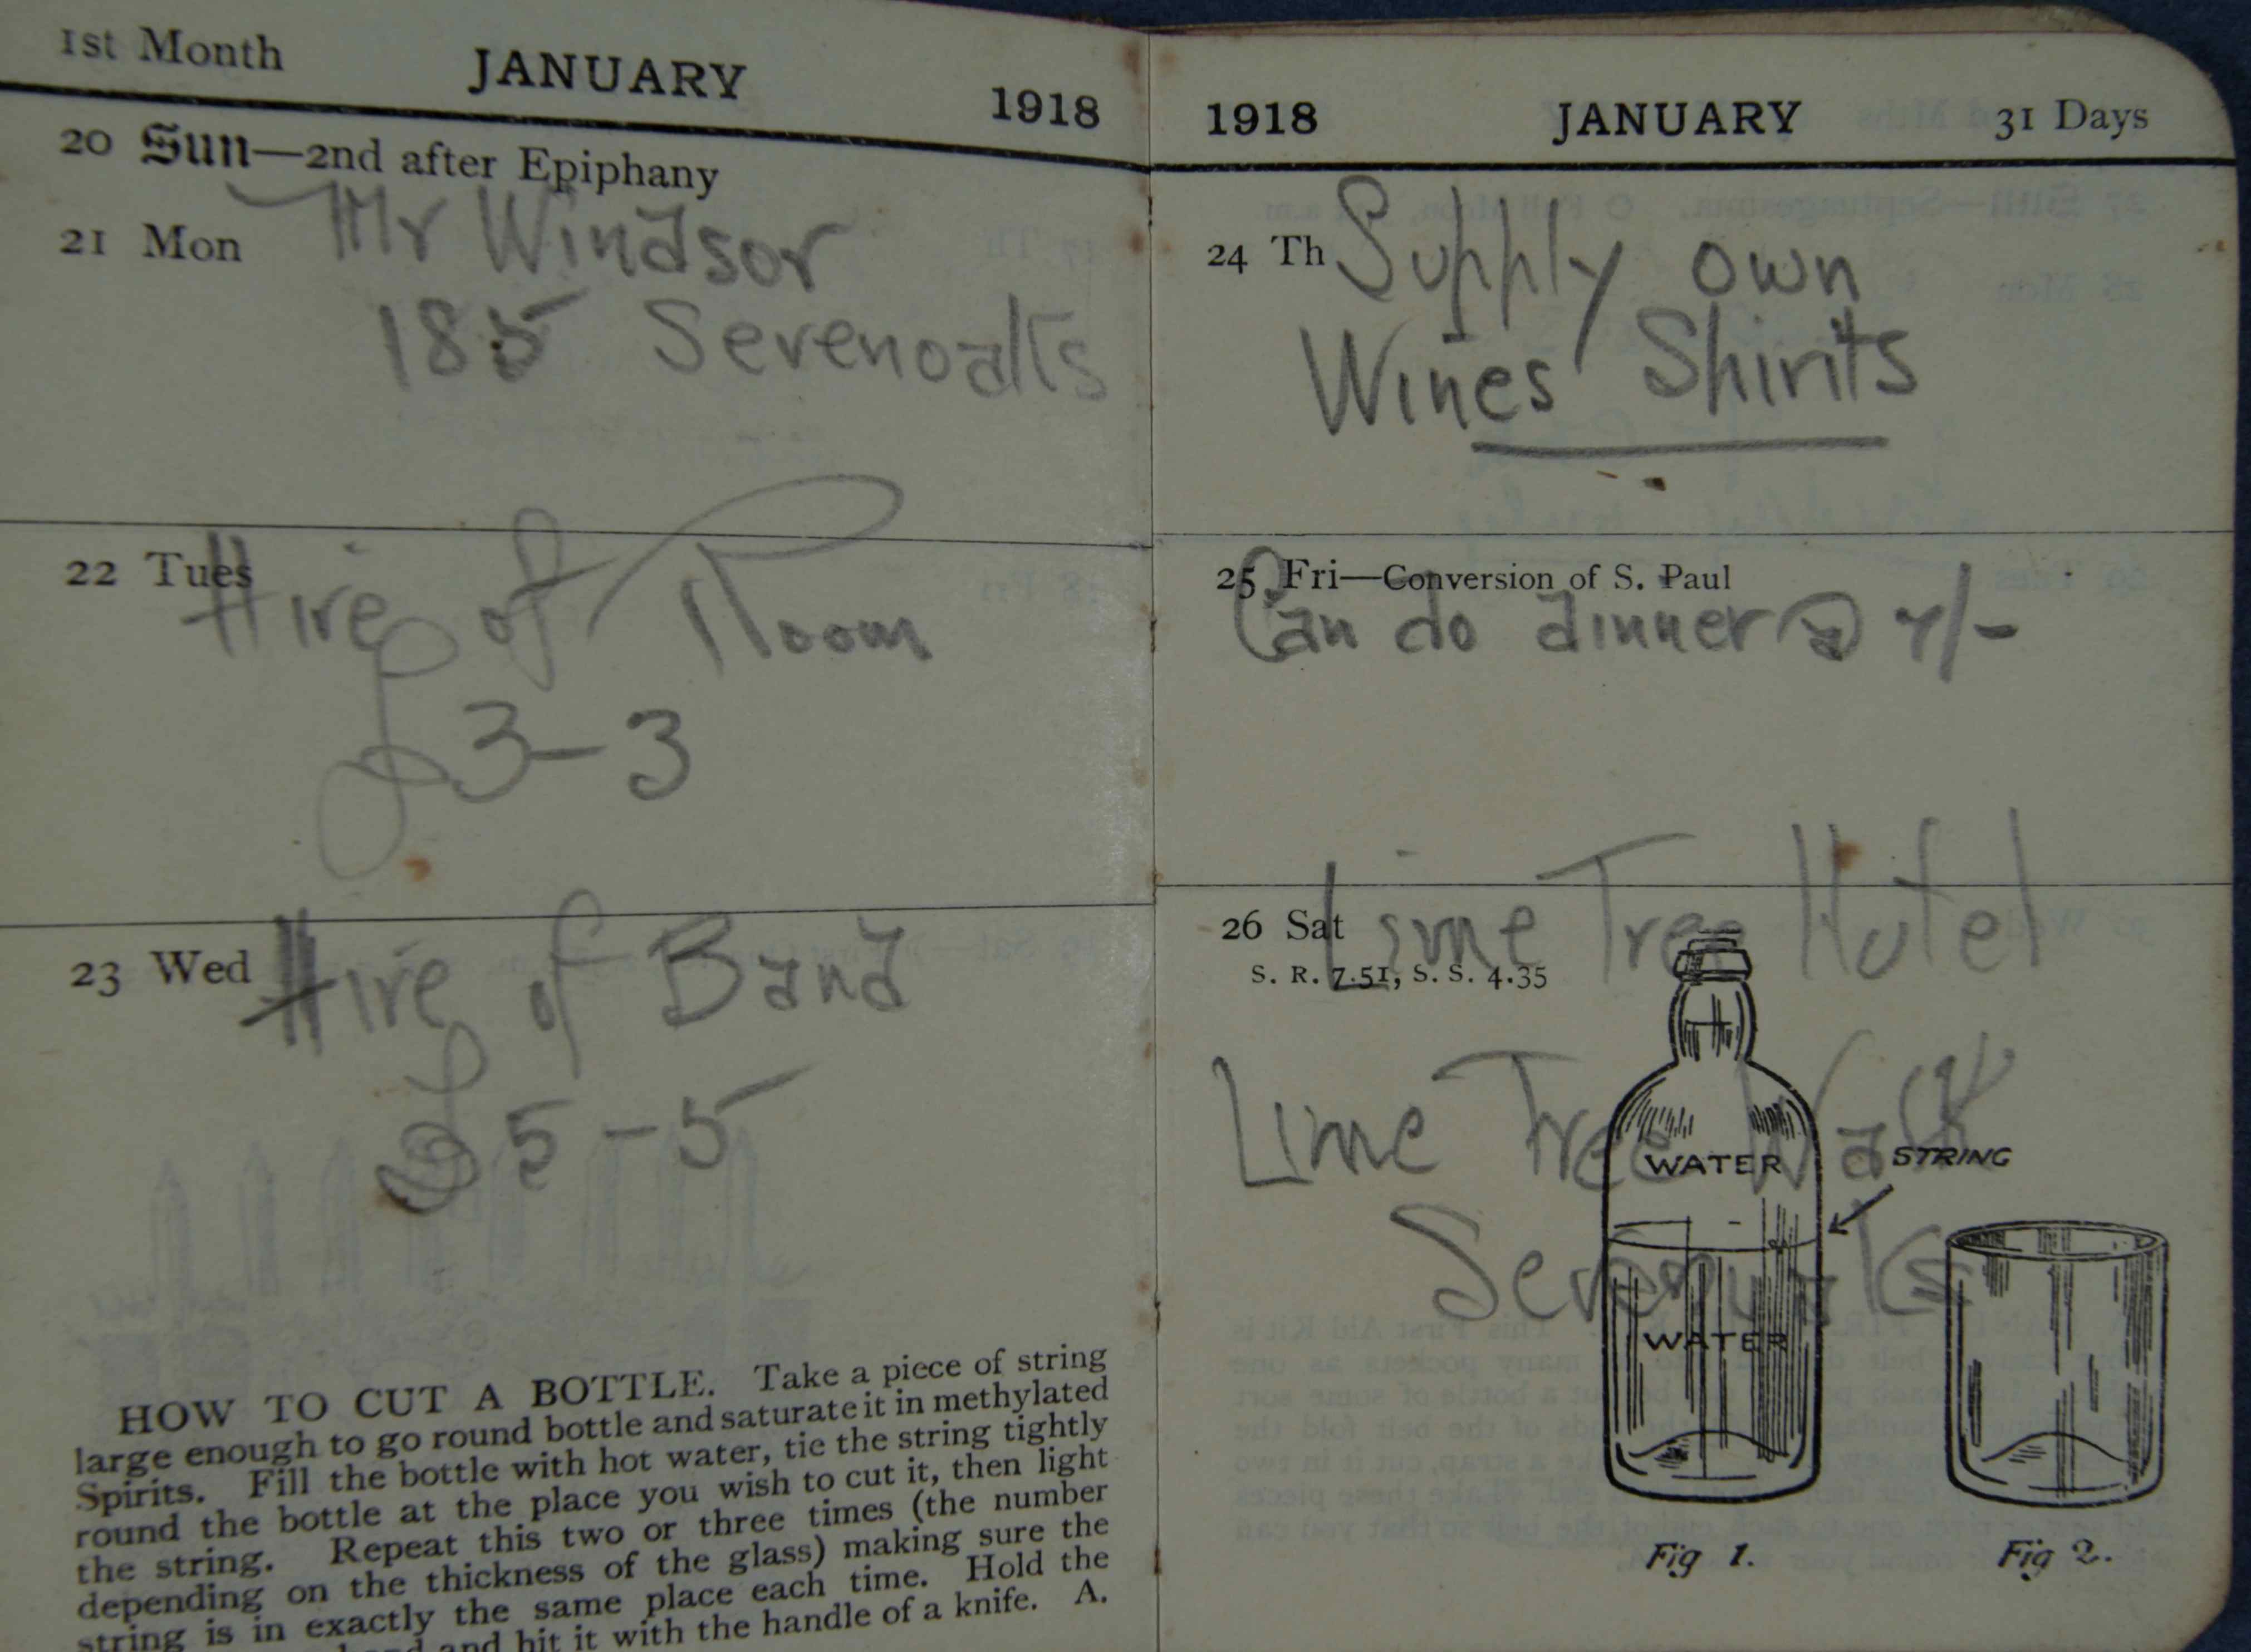 1st Month JANUARY 1918
20 Sun—2nd after Epiphany
21 Mon Mr Windsor
185 Sevenoaks
22 Tues Hire of Room
£3-3
23 Wed Hire of Band
£5-5
HOW TO CUT A BOTTLE. Take a piece of string
large enough to go round bottle and saturate it in methylated
Spirits. Fill the bottle with hot water, tie the string tightly
round the bottle at the place you wish to cut it, then light
the string. Repeat this two or three times (the number
depending on the thickness of the glass) making sure the
string is in exactly the same place each time. Hold the
and hit it with the handle of a knife. A.
1918 JANUARY 31 Days
24 Th Supply own
Wines Spirits
25 Fri—Conversion of S. Paul
Can do dinner @ 7/-
26 Sat Lime Tree Hotel
S. R. 7.51, S. S. 4.35
Lime Tree Walk
WATER
STRING
Sevenoaks
WATER
Fig 1. Fig 2.